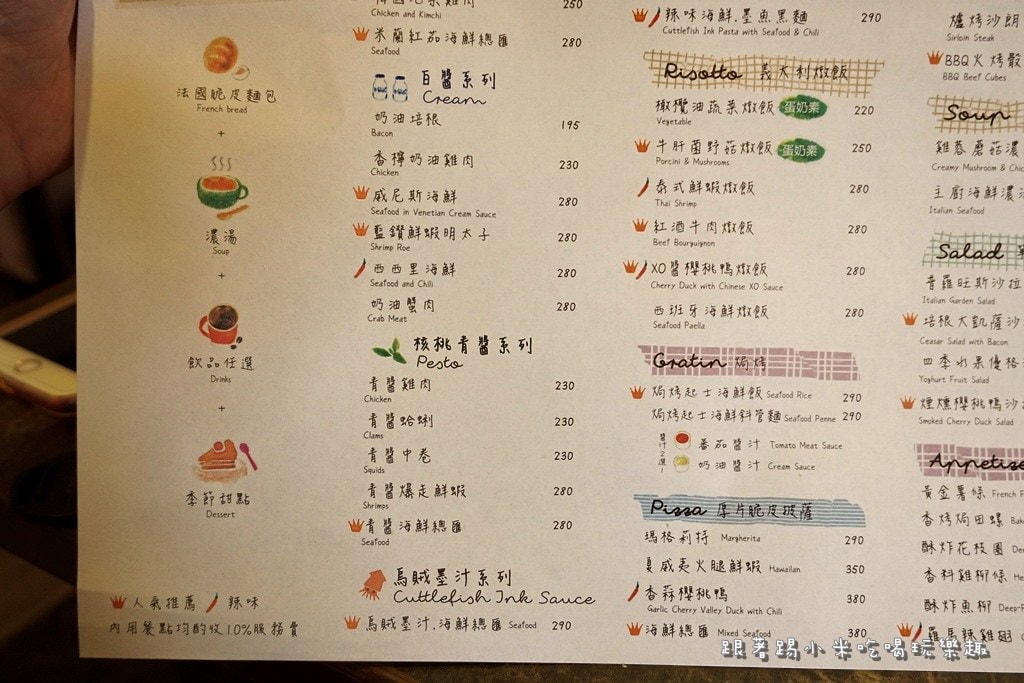 法國脆皮麵包
French bread
+
濃湯
Soup
+
飲品任選
Drinks
+
季節甜點
Dessert
人氣推薦 辣味
內用餐點均酌收10%服務費
Chicken and Kimchi 250
米蘭紅茄海鮮總匯 280
Seafood
白醬系列
Cream
奶油培根 195
Bacon
香檸奶油雞肉 230
Chicken
威尼斯海鮮 280
Seafood in Venetian Cream Sauce
藍鑽鮮蝦明太子 280
Shrimp Roe
西西里海鮮 280
Seafood and Chili
奶油蟹肉 280
Crab Meat
核桃青醬系列
Pesto
青醬雞肉 230
Chicken
青醬蛤蜊 230
Clams
青醬中卷 230
Squids
青醬爆走鮮蝦 280
Shrimps
青醬海鮮總匯 280
Seafood
烏賊墨汁系列
Cuttlefish Ink Sauce
烏賊墨汁.海鮮總匯 Seafood 290
辣味海鮮.墨魚黑麵 290
Cuttlefish Ink Pasta with Seafood & Chili
Risotto 義大利燉飯
橄欖油蔬菜燉飯 蛋奶素 220
Vegetable
牛肝菌野菇燉飯 蛋奶素 250
Porcini & Mushrooms
泰式鮮蝦燉飯 280
Thai Shrimp
紅酒牛肉燉飯 280
Beef Bourguignon
XO醬櫻桃鴨燉飯 280
Cherry Duck with Chinese XO Sauce
西班牙海鮮燉飯 280
Seafood Paella
Gratin 焗烤
焗烤起士海鮮飯 Seafood Rice 290
焗烤起士海鮮斜管麵 Seafood Penne 290
醬汁2選1
番茄醬汁 Tomato Meat Sauce
奶油醬汁 Cream Sauce
Pizza 厚片脆皮披薩
瑪格莉特 Margherita 290
夏威夷火腿鮮蝦 Hawaiian 350
香蒜櫻桃鴨 380
Garlic Cherry Valley Duck with Chili
海鮮總匯 Mixed Seafood 380
爐烤沙朗
Sirloin Steak
BBQ火烤骰
BBQ Beef Cubes
Soup
雞蓉蘑菇濃
Creamy Mushroom & Chic
主廚海鮮濃
Italian Seafood
Salad
普羅旺斯沙拉
Italian Garden Salad
培根大凱薩沙
Ceasar Salad with Bacon
四季水果優格
Yoghurt Fruit Salad
煙燻櫻桃鴨沙
Smoked Cherry Duck Salad
Appetize
黃金薯條 French F
香烤焗田螺 Bak
酥炸花枝圈 Dee
香料雞柳條 He
酥炸魚柳 Deep-F
羅馬辣雞翅
跟著踢小米吃喝玩樂趣